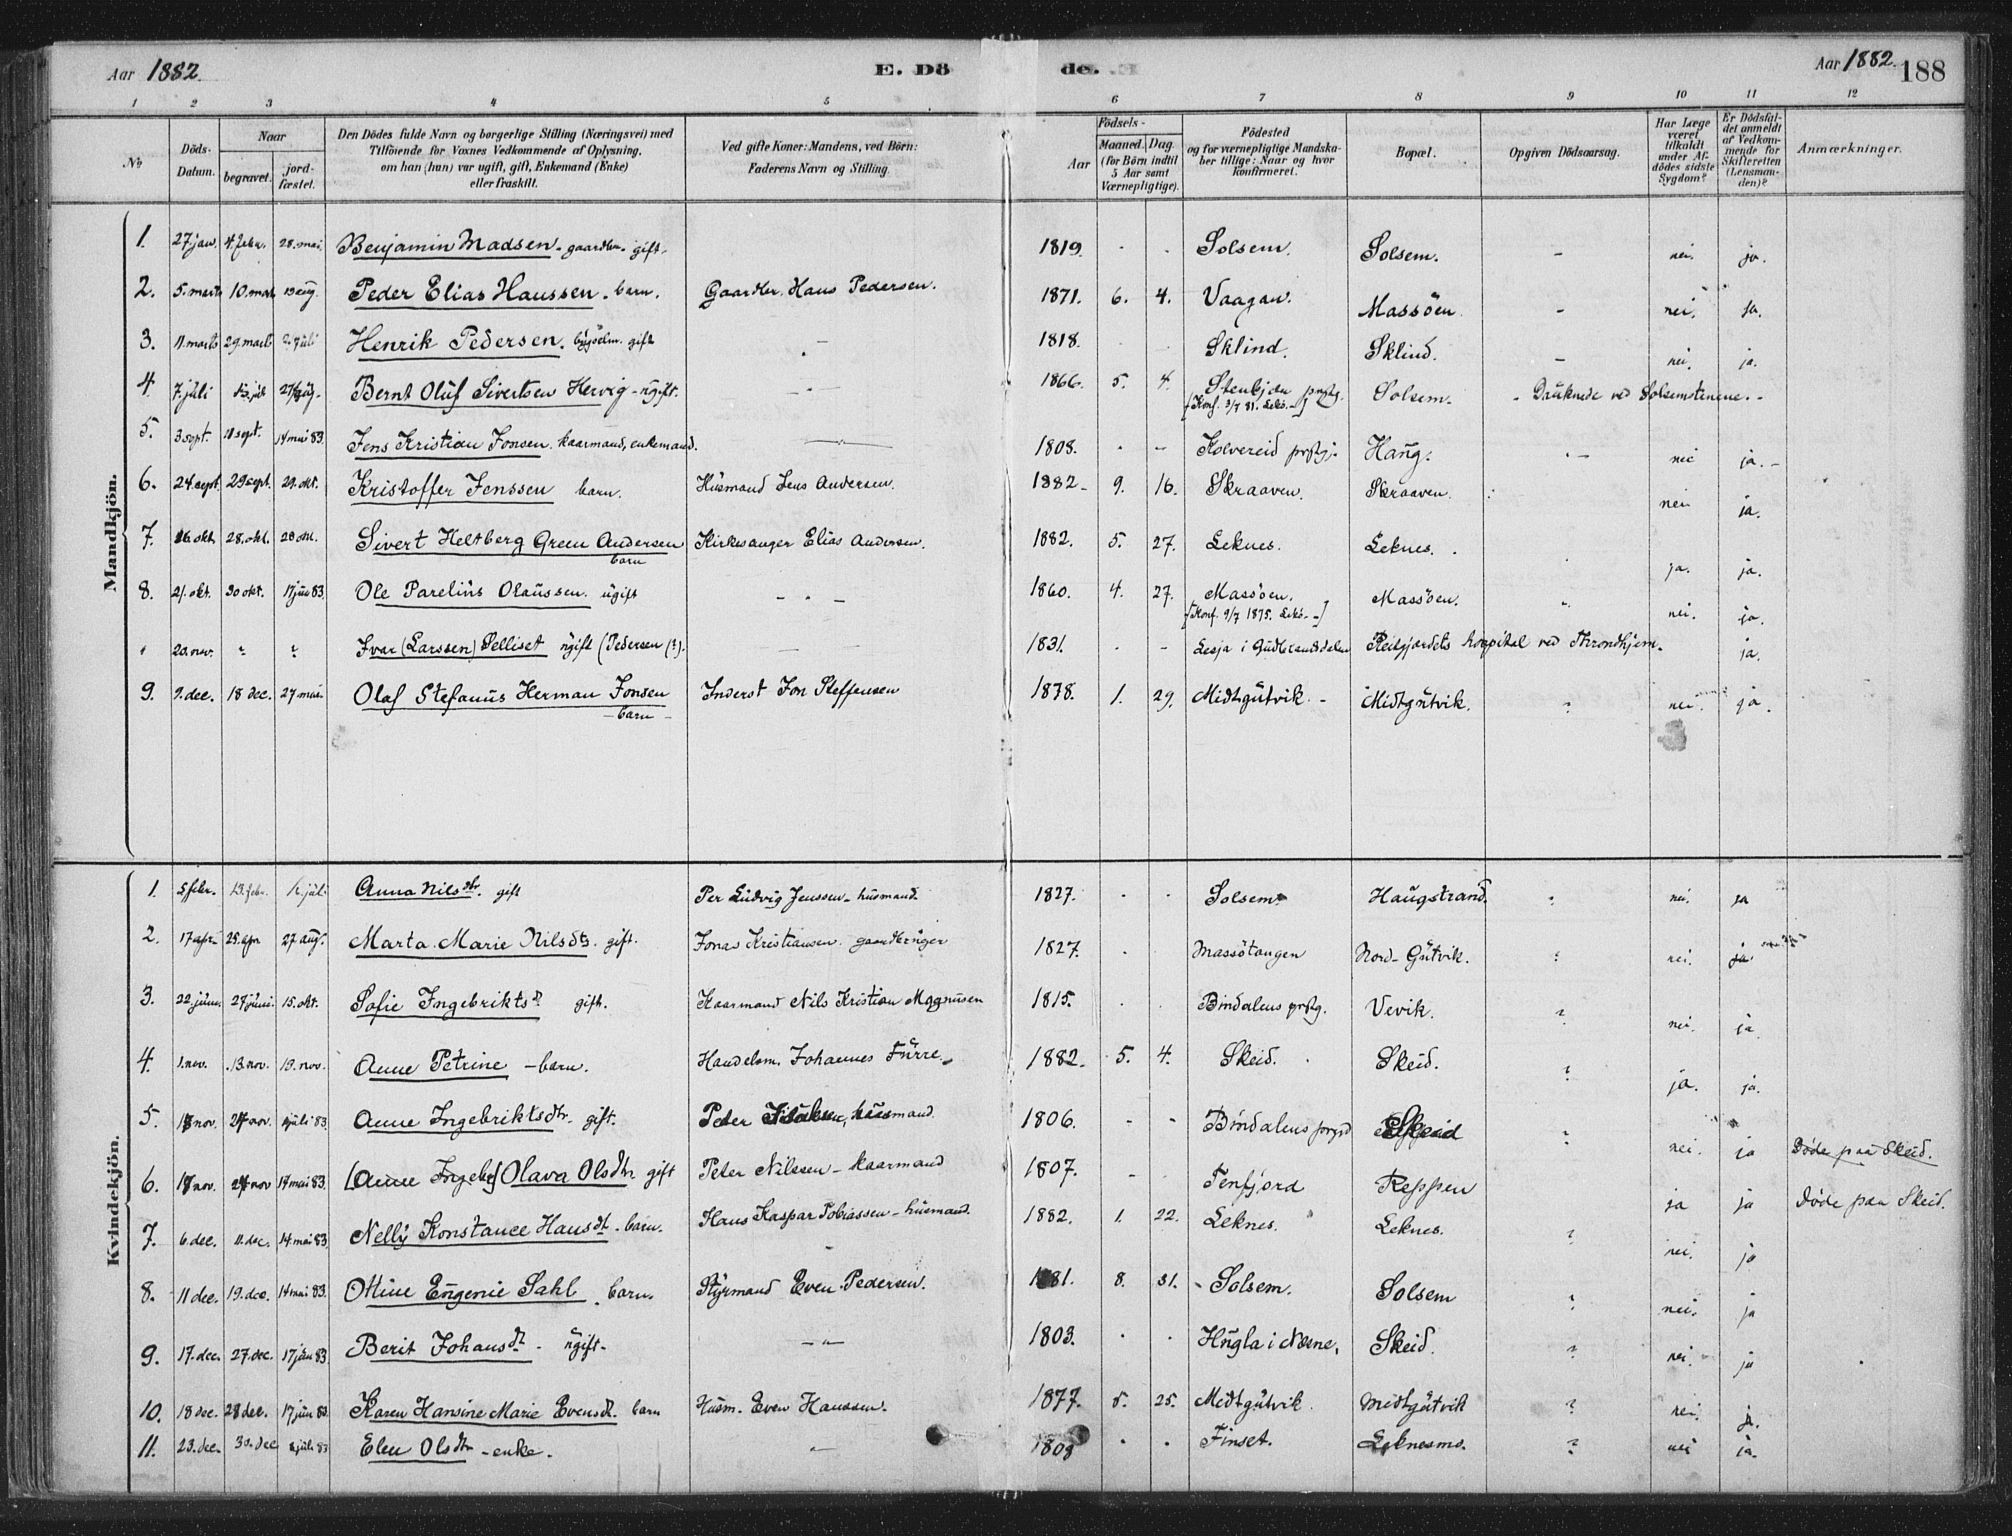 Aar 1882. E. Dö de. Aar 1882. 188
1 2 3 4 5 6 7 8 9 10 11 12
No Döds-Datum. Naar begravet. jord-fæstet. Den Dödes fulde Navn og borgerlige Stilling (Næringsvei) med Tilföiende for Voxnes Vedkommende af Oplysning, om han (hun) var ugift, gift, Enkemand (Enke) eller fraskilt. Ved gifte Koner: Mandens, ved Börn: Faderens Navn og Stilling. Födsels- Aar Maaned. Dag. (for Börn indtil 5 Aar samt Værnepligtige). Födested og for værnepligtige Mandskaber tillige: Naar og hvor konfirmeret. Bopæl. Opgiven Dödsaarsag. Har Læge været tilkaldt under Afdödes sidste Sygdom? Er Dödsfaldet anmeldt af Vedkommende for Skifteretten (Lensmanden)? Anmærkninger.
Mandkjön.
1. 27 jan. 4. febr. 28. mai. Benjamin Madsen - gaardbr. gift. 1819. Solsem. Solsem. - nei. ja.
2. 5. marts 10. marts aug. Peder Elias Hanssen. barn. Gaardbr. Hans Pedersen. 1871. 6. 4. Vaagan. Massöen. - nei. ja.
3. 11. marts 29. marts 2. juli Henrik Pedersen. gift - 1818. Sklind. Sklind. - nei. ja.
4 7. juli juli 27 aug. Bernt Oluf Sivertsen Hervig - ugift. - 1866. 5. 4. Stenkjær prstg. Solsem. - Druknede ved Solsemstenene. -
[Konf. 3/7 81. Lekö. -]
5. 3 sept. 11 sept. 14 mai 83. Jens Kristian Jonsen. kaarmand, enkemand. 1808. Kolvereid prstg. Haug. - nei ja. -
6. 24. sept. 29 sept. 29. okt. Kristoffer Jenssen barn. Husmand Jens Andersen. 1882 - 9. 16. Skraaven. Skraaven. nei ja.
7. 16. okt. 28. okt. okt. Sivert Heltberg Green Andersen Kirkesanger Elias Andersen. 1882. 5. 27. Leknes. Leknes. ja. ja.
barn
8. 21. okt. 30 okt. 17 juni 83. Ole Parelius Olaussen. ugift - 1860. 4. 27. Massöen. Massöen. nei. ja.
[Konf. 9/7 1875. Lekö. -]
" 20. nov. " " Ivar (Larssen) Pelliset ugift (Pedersen (?). - 1831. - - Lesja i Gudbrandsdalen Reitgjærdets hospital ved Throndhjem. ja.
9. 9. dec. 18 dec. 27 mai. Olaf Stefanus Herman Jonsen Inderst Jon Steffensen 1878. 1. 29. Midtgutvik. - Midtgutvik. ? nei. ja.
- barn -
Kvindekjön.
1. 5 febr. 13. febr. juli Anna Nilsdtr. gift Per Ludvig Jenssen - husmand. 1827. Solsem. Haugstrand. nei. ja
2. 17 apr. 25. apr 27. aug. Marta Marie Nilsdtr. gift. Jonas Kristiansen gaardbruger 1827. Massötangen Nord-Gutvik. nei. ja.
3. 22. juni. 27 juni. 15. okt. Sofie Ingebriktsdr gift. Kaarmand Nils Kristian Magnusen 1815. Bindalens prstg. Vevik. ? nei. ja
4. 1. nov. 13. nov. 19. nov. Anne Petrine - barn. Handelsm. Johannes Furre. 1882. 5. 4. Skeid. Skeid. ? ja. ja.
5. nov. nov. juli 83 Anne Ingebriktsdtr. gift. Peter Isaksen, husmand. 1806. - - Bindalens prgd Skeid nei. ja Döde paa Skeid.
6. nov. nov 14 mai 83. [Anne Ingebr] Olava Olsdtr. gift Peter Nilssen - kaarmand 1807. Terfjord Reppen ja ja Döde paa Skeid.
7. 6. dec. 11. dec. 14. mai 83 Nelly Konstance Hansdtr - barn. Hans Kaspar Tobiassen - husmand. 1882. 1. 22. Leknes. Leknes. ? nei. ja
8. 11 dec. 19. dec. 14 mai 83. Ottine Eugenie Sahl. barn. Styrmand Even Pedersen. 1881. 8. 31. Solsem. Solsem ? nei. ja
9. 17. dec. 27. dec. 17 juni 83 Berit Johansdtr - ugift. - 1803. Hugla i Næsne. Skeid. ? nei. ja
10. 18 dec. 28 dec. 17 juni 83. Karen Hansine Marie Evensdtr. barn Husm. Even Hanssen. 1877. 5. 25. Midtgutvik. Midtgutvik ? nei. ja.
11. 23. dec. 30. dec juli 83 Elen Olsdtr - enke. - 1809 Finset. Leknesmo. ? nei ja.